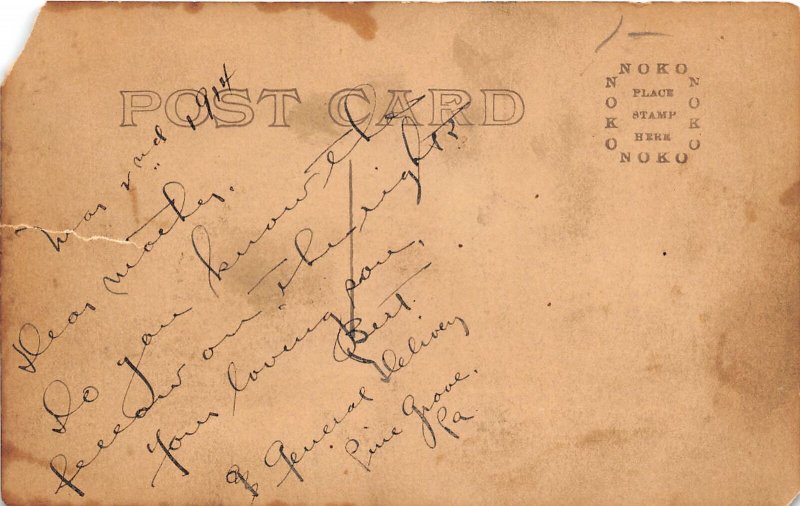 POST CARD
NOKO
NOKO
PLACE
STAMP
HERE
NOKO
NOKO
Mar 2nd 1914
Dear Mother,
Do you know the
fellow on the right?
Your loving son,
Bert.
% General Delivery
Pine Grove,
Pa